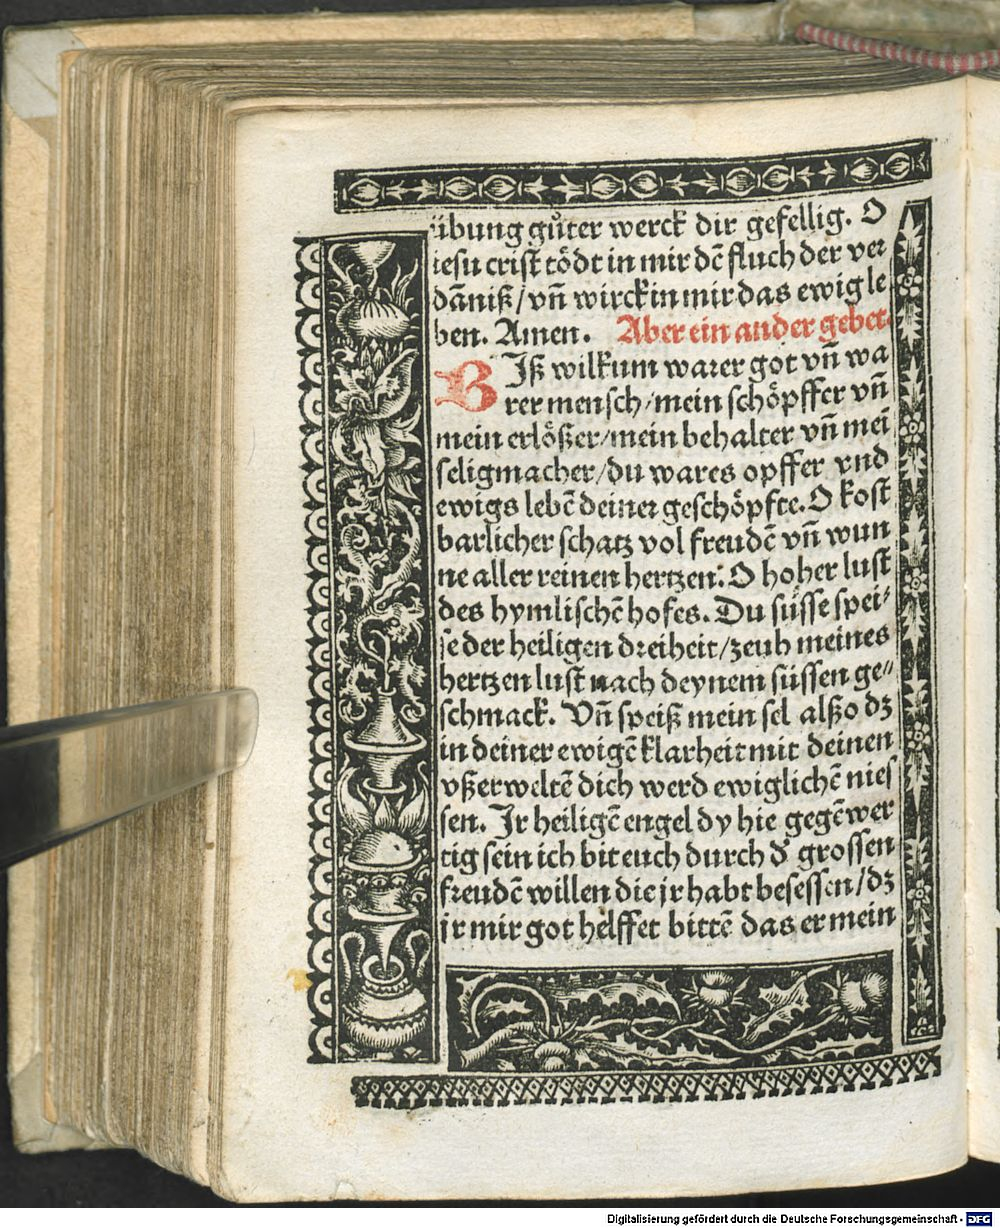 übung gůter werck dir gefellig. O
iesu crist tödt in mir dē fluch der ver
dāniß / vn̄ wirck in mir das ewig le
ben. Amen. Aber ein ander gebet.
BIß wilkum warer got vn̄ wa
rer mensch / mein schöpffer vn̄
mein erlößer / mein behalter vn̄ mei̅
seligmacher / du wares opffer vnd
ewigs lebē deiner geschöpfte. O kost
barlicher schatz vol freudē vn̄ wun
ne aller reinen hertzen: O hoher lust
des hymlischē hofes. Du süsse spei⸗
se der heiligen dreiheit / zeuh meines
hertzen lust nach deynem süssen ge⸗
schmack. Vn̄ speiß mein sel alßo dz
in deiner ewigē klarheit mit deinen
vßerweltē dich werd ewiglichē nies
sen. Ir heiligē engel dy hie gegēwer
tig sein ich bit euch durch d' grossen
freudē willen die jr habt besessen / dz
jr mir got helffet bittē das er mein
Digitalisierung gefördert durch die Deutsche Forschungsgemeinschaft - DFG